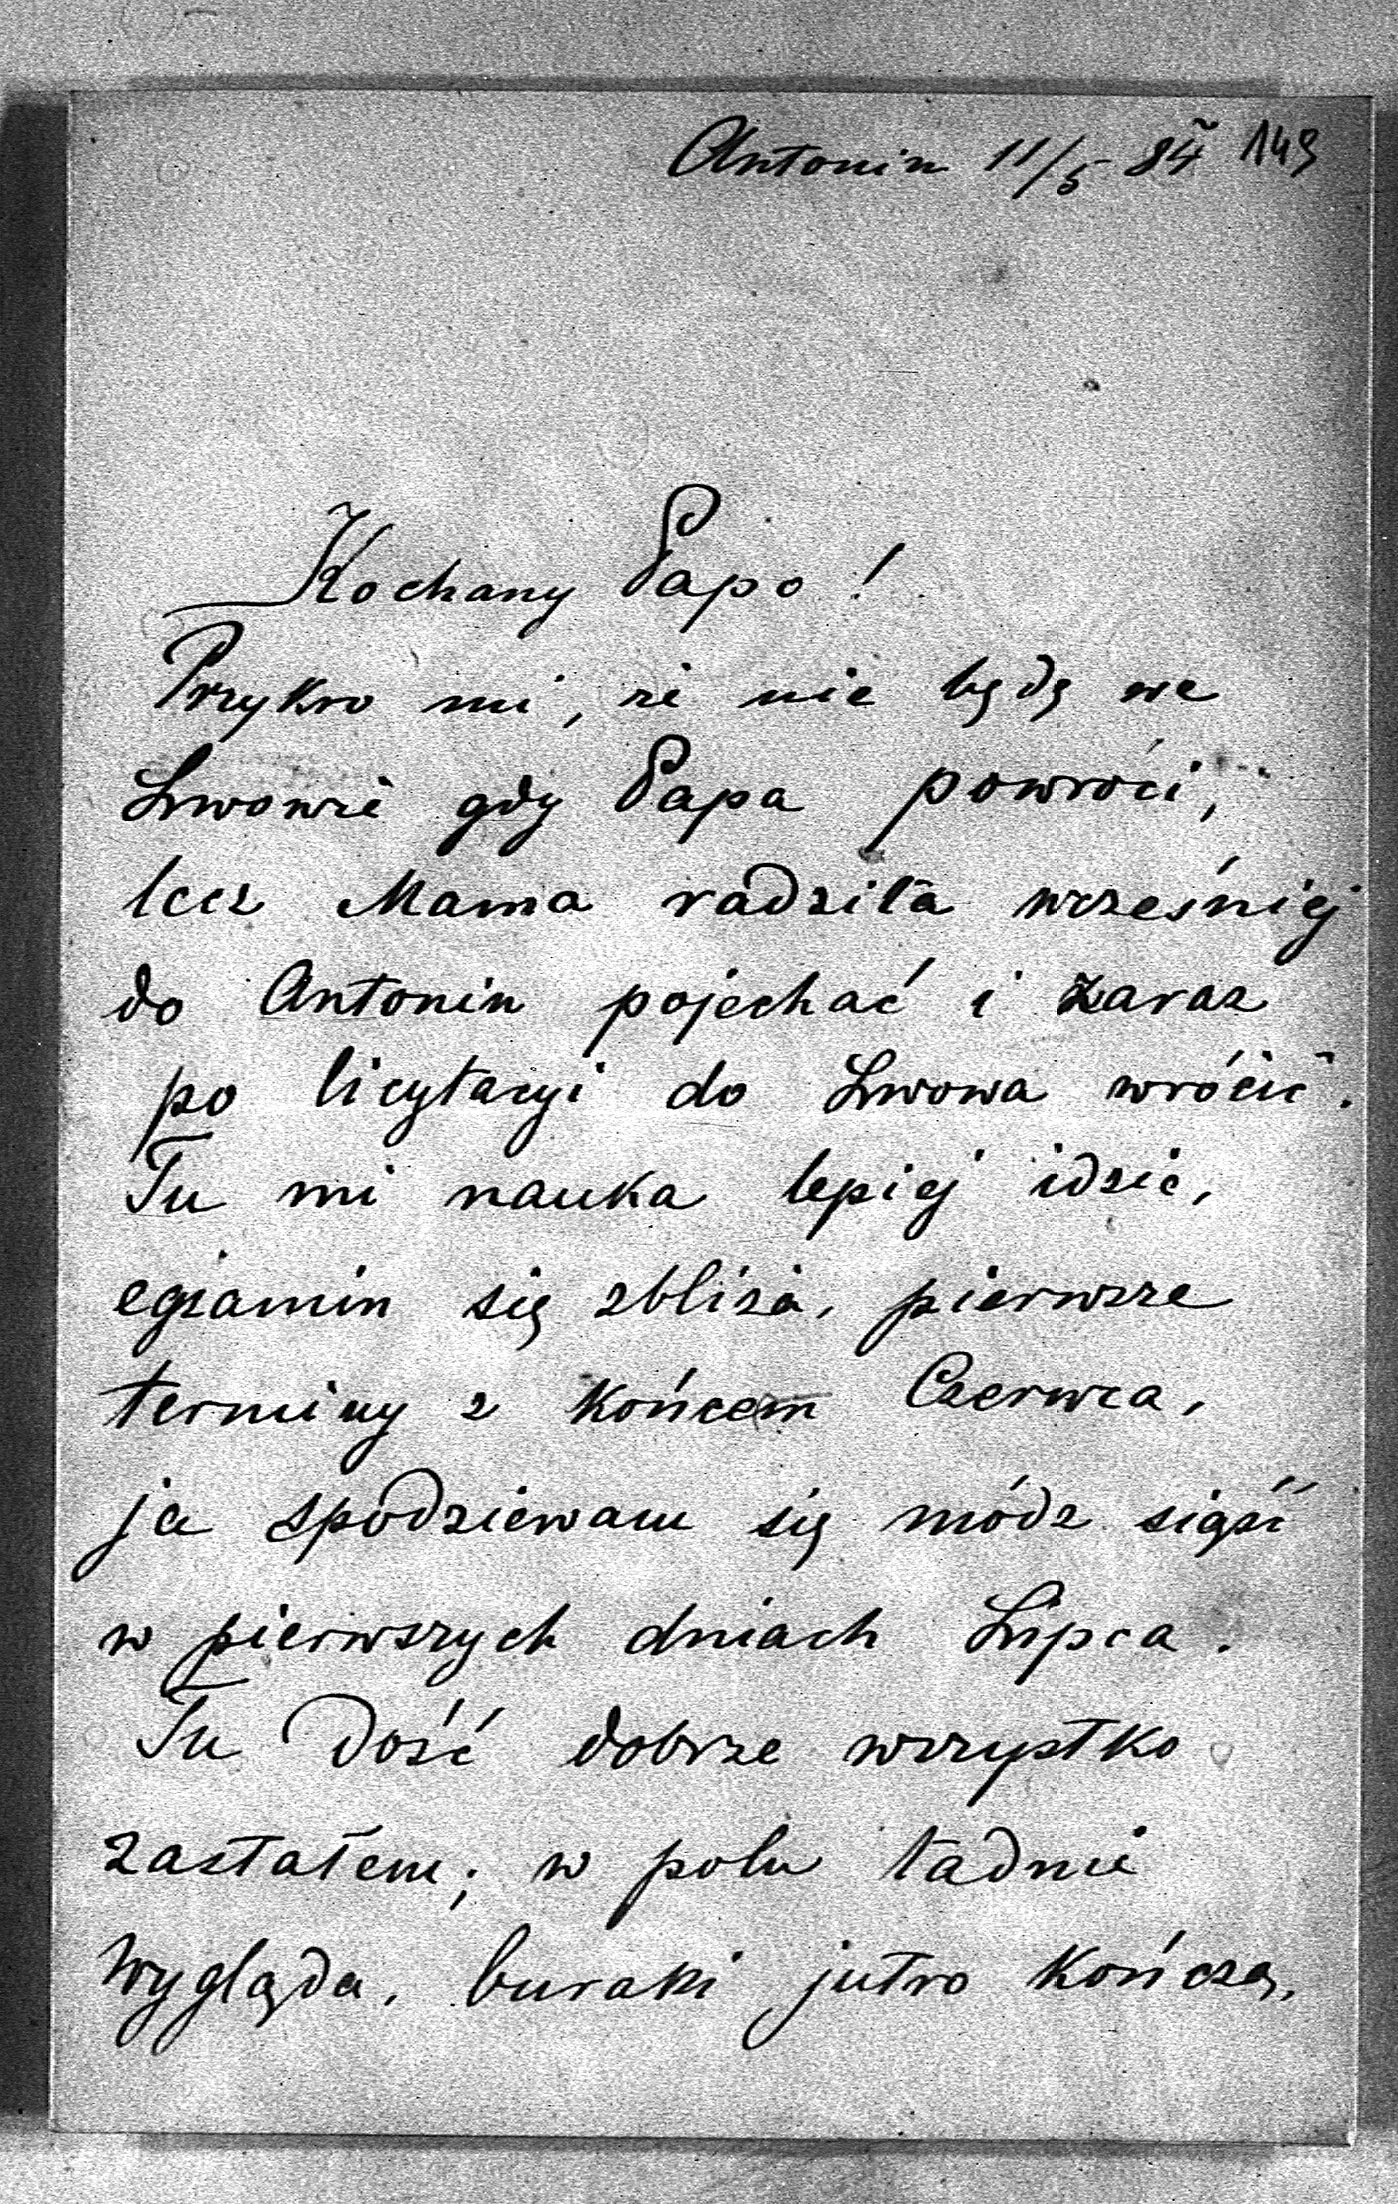 Antonin 11/5 84 149
Kochany Papo!
Przykro mi, że nie będę we
Lwowie gdy Papa powróci,
lecz Mama radziła wcześniej
do Antonin pojechać i zaraz
po licytacyi do Lwowa wrócić.
Tu mi nauka lepiej idzie,
egzamin się zbliża, pierwsze
terminy z końcem Czerwca,
ja spodziewam się módz siąść
w pierwszych dniach Lipca.
Tu dość dobrze wszystko
zastałem; w polu ładnie
wygląda, buraki jutro kończą,